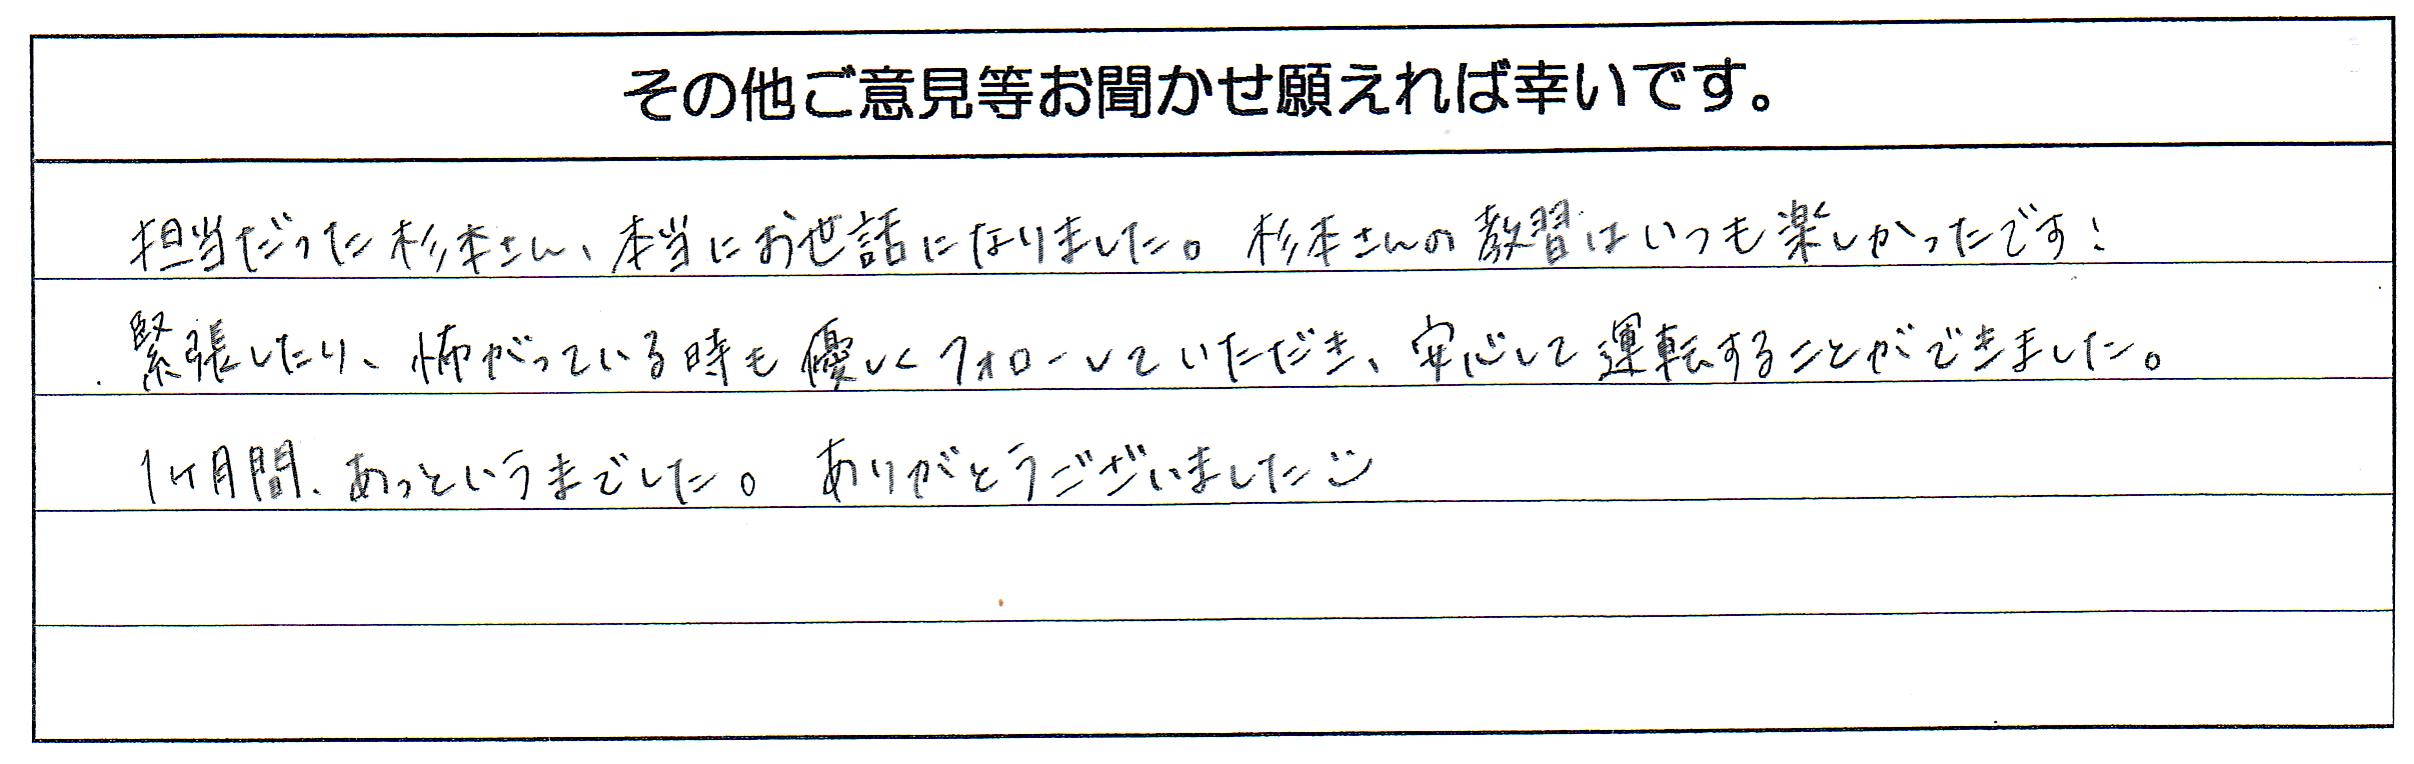 その他ご意見等お聞かせ願えれば幸いです。
担当だった杉本さん、本当にお世話になりました。杉本さんの教習はいつも楽しかったです!
緊張したり、怖がっている時も優しくフォローしていただき、安心して運転することができました。
1ヶ月間、あっというまでした。ありがとうございました